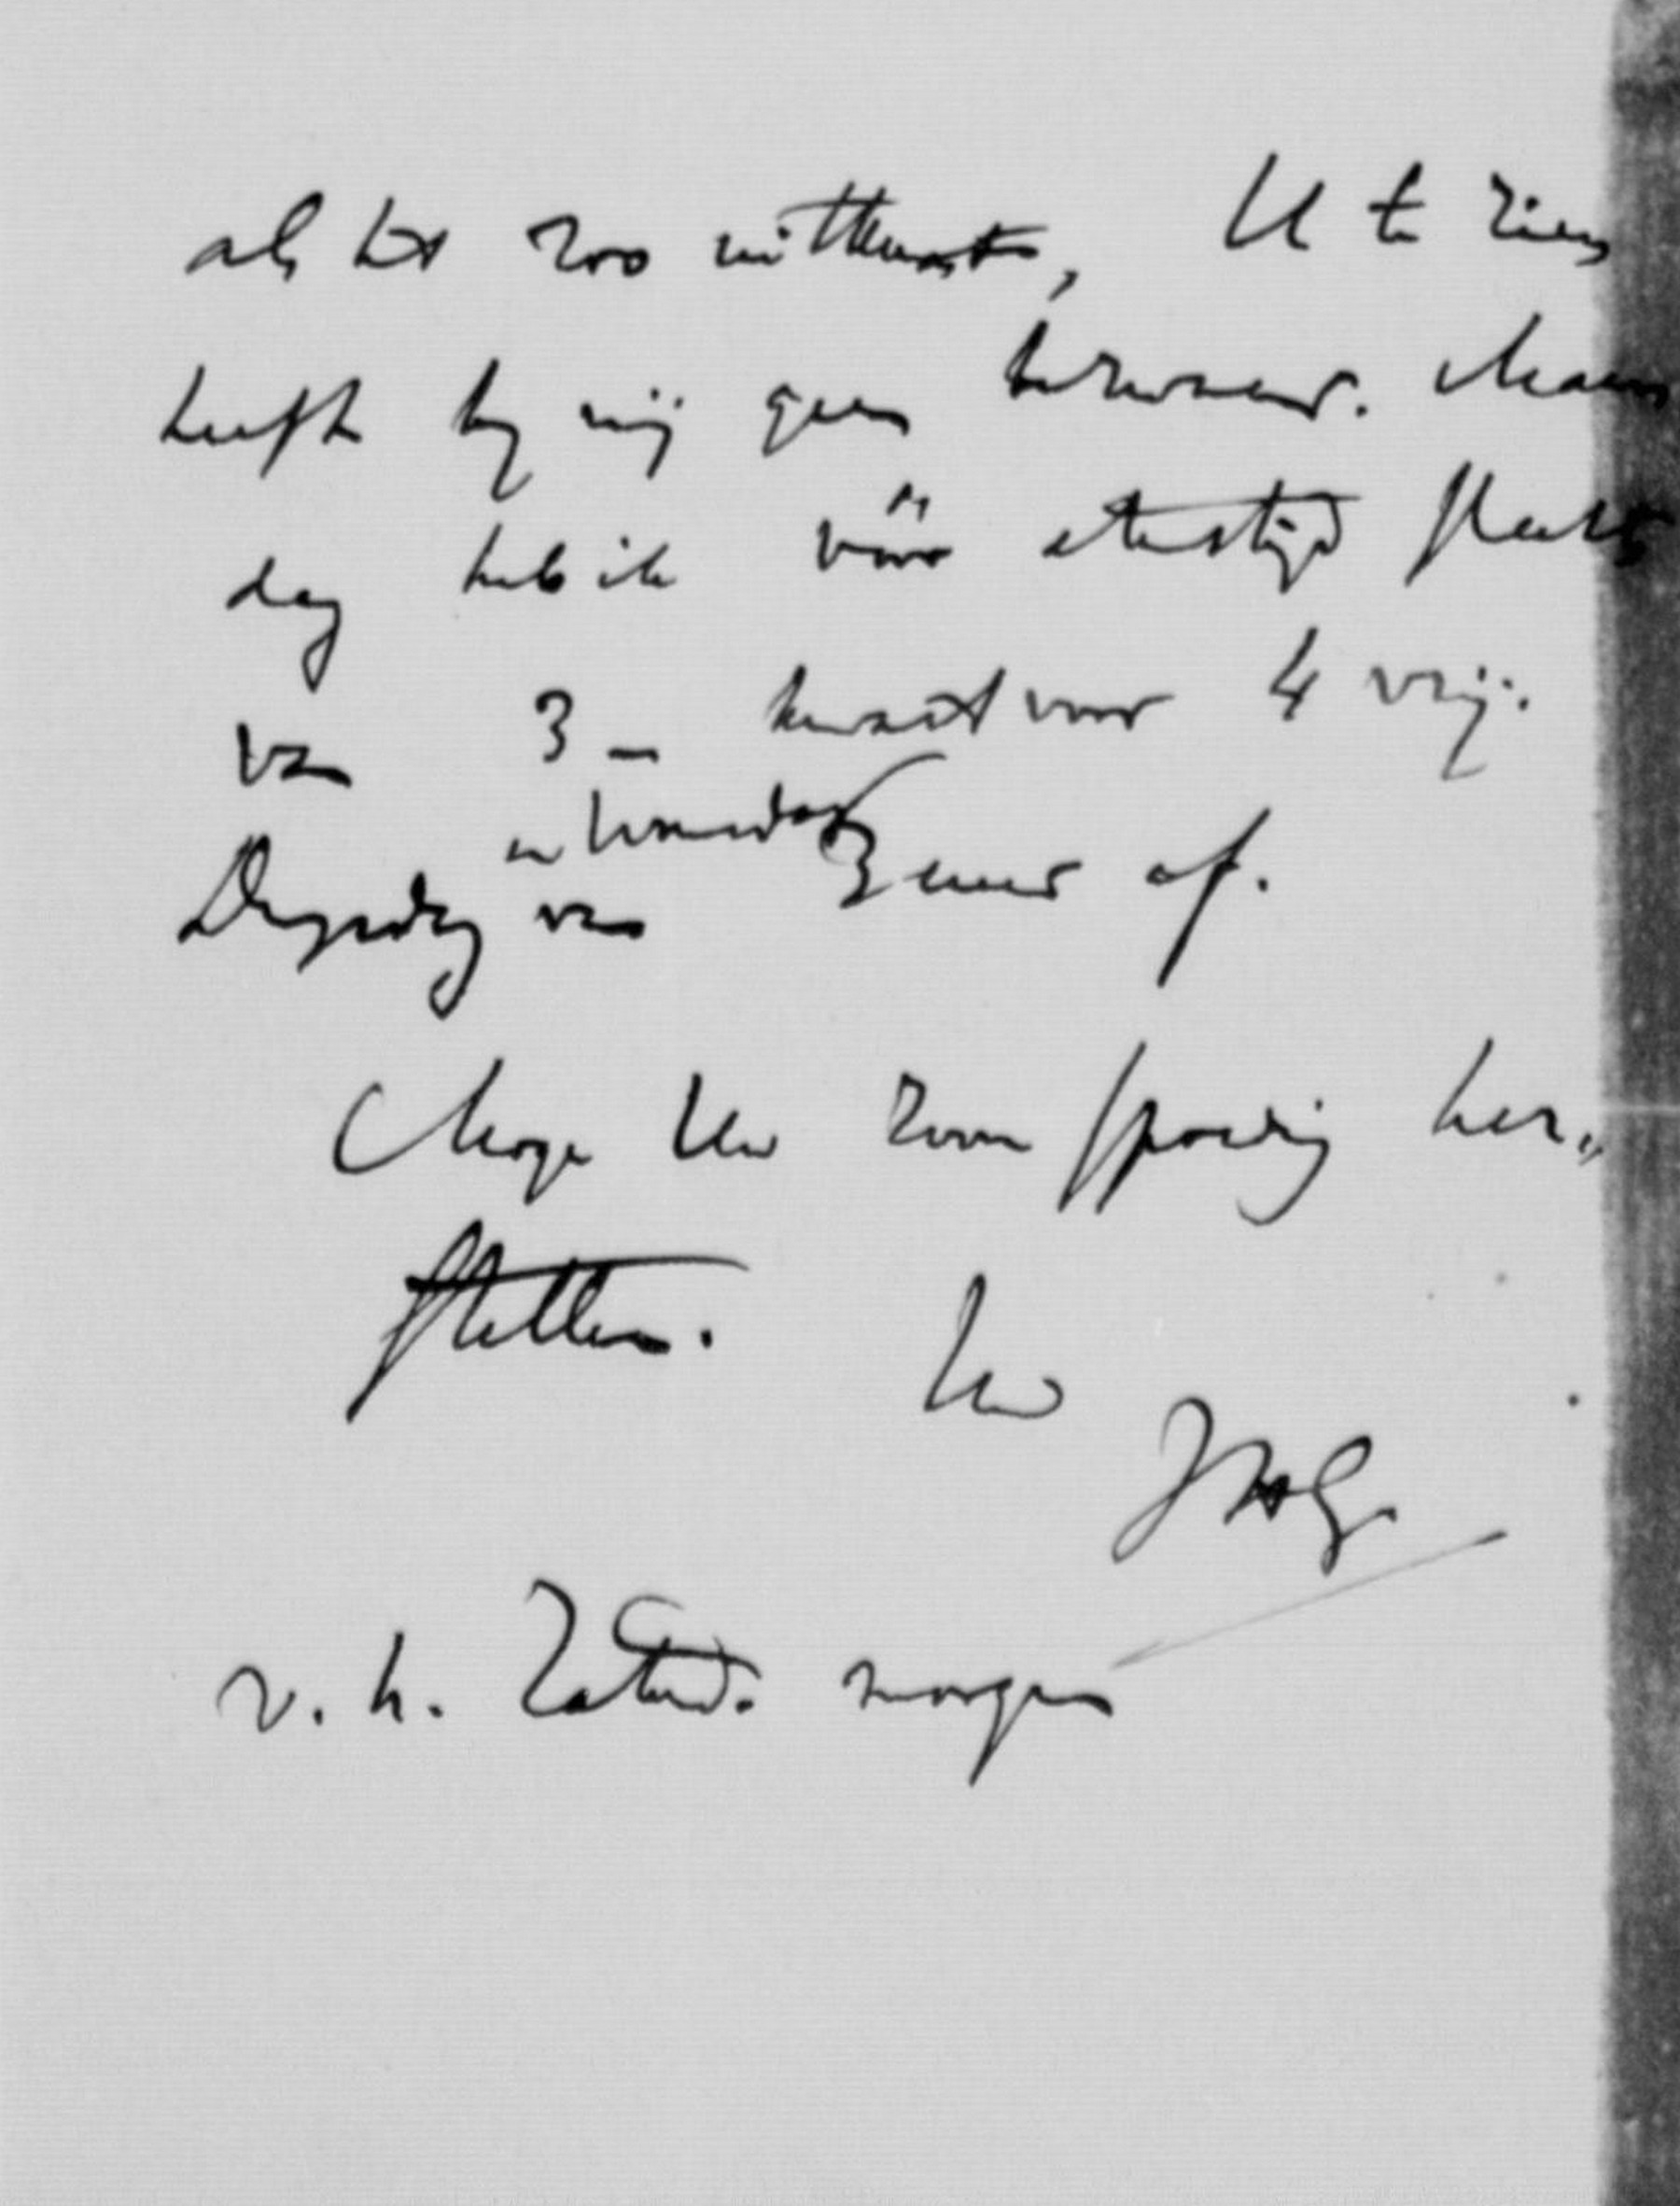 als het zoo uitkomt, U te zien
heeft bij mij geen bezwaar. Maan
dag heb ik vóór etenstijd slechts
van 3 – kwart voor 4 vrij.
en Woensdag
Dinsdag van 3 uur af.
Moge Uw zoon spoedig her„
stellen.
Uw
v. h. Zaterd. morgen